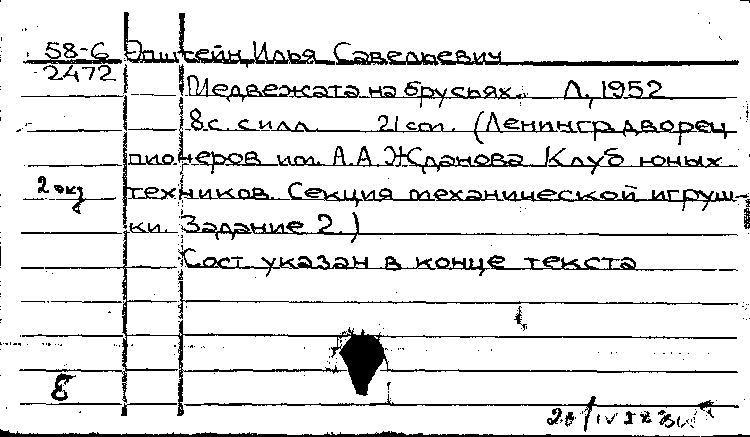 58-6 Эпштейн, Илья Савельевич
2472
Медвежата на брусьях. Л., 1952
8 с. с илл. 21 см. (Ленингр. дворец
пионеров им. А.А. Жданова. Клуб юных
2 экз техников. Секция механической игруш-
ки. Задание 2.)
Сост. указан в конце текста
Б